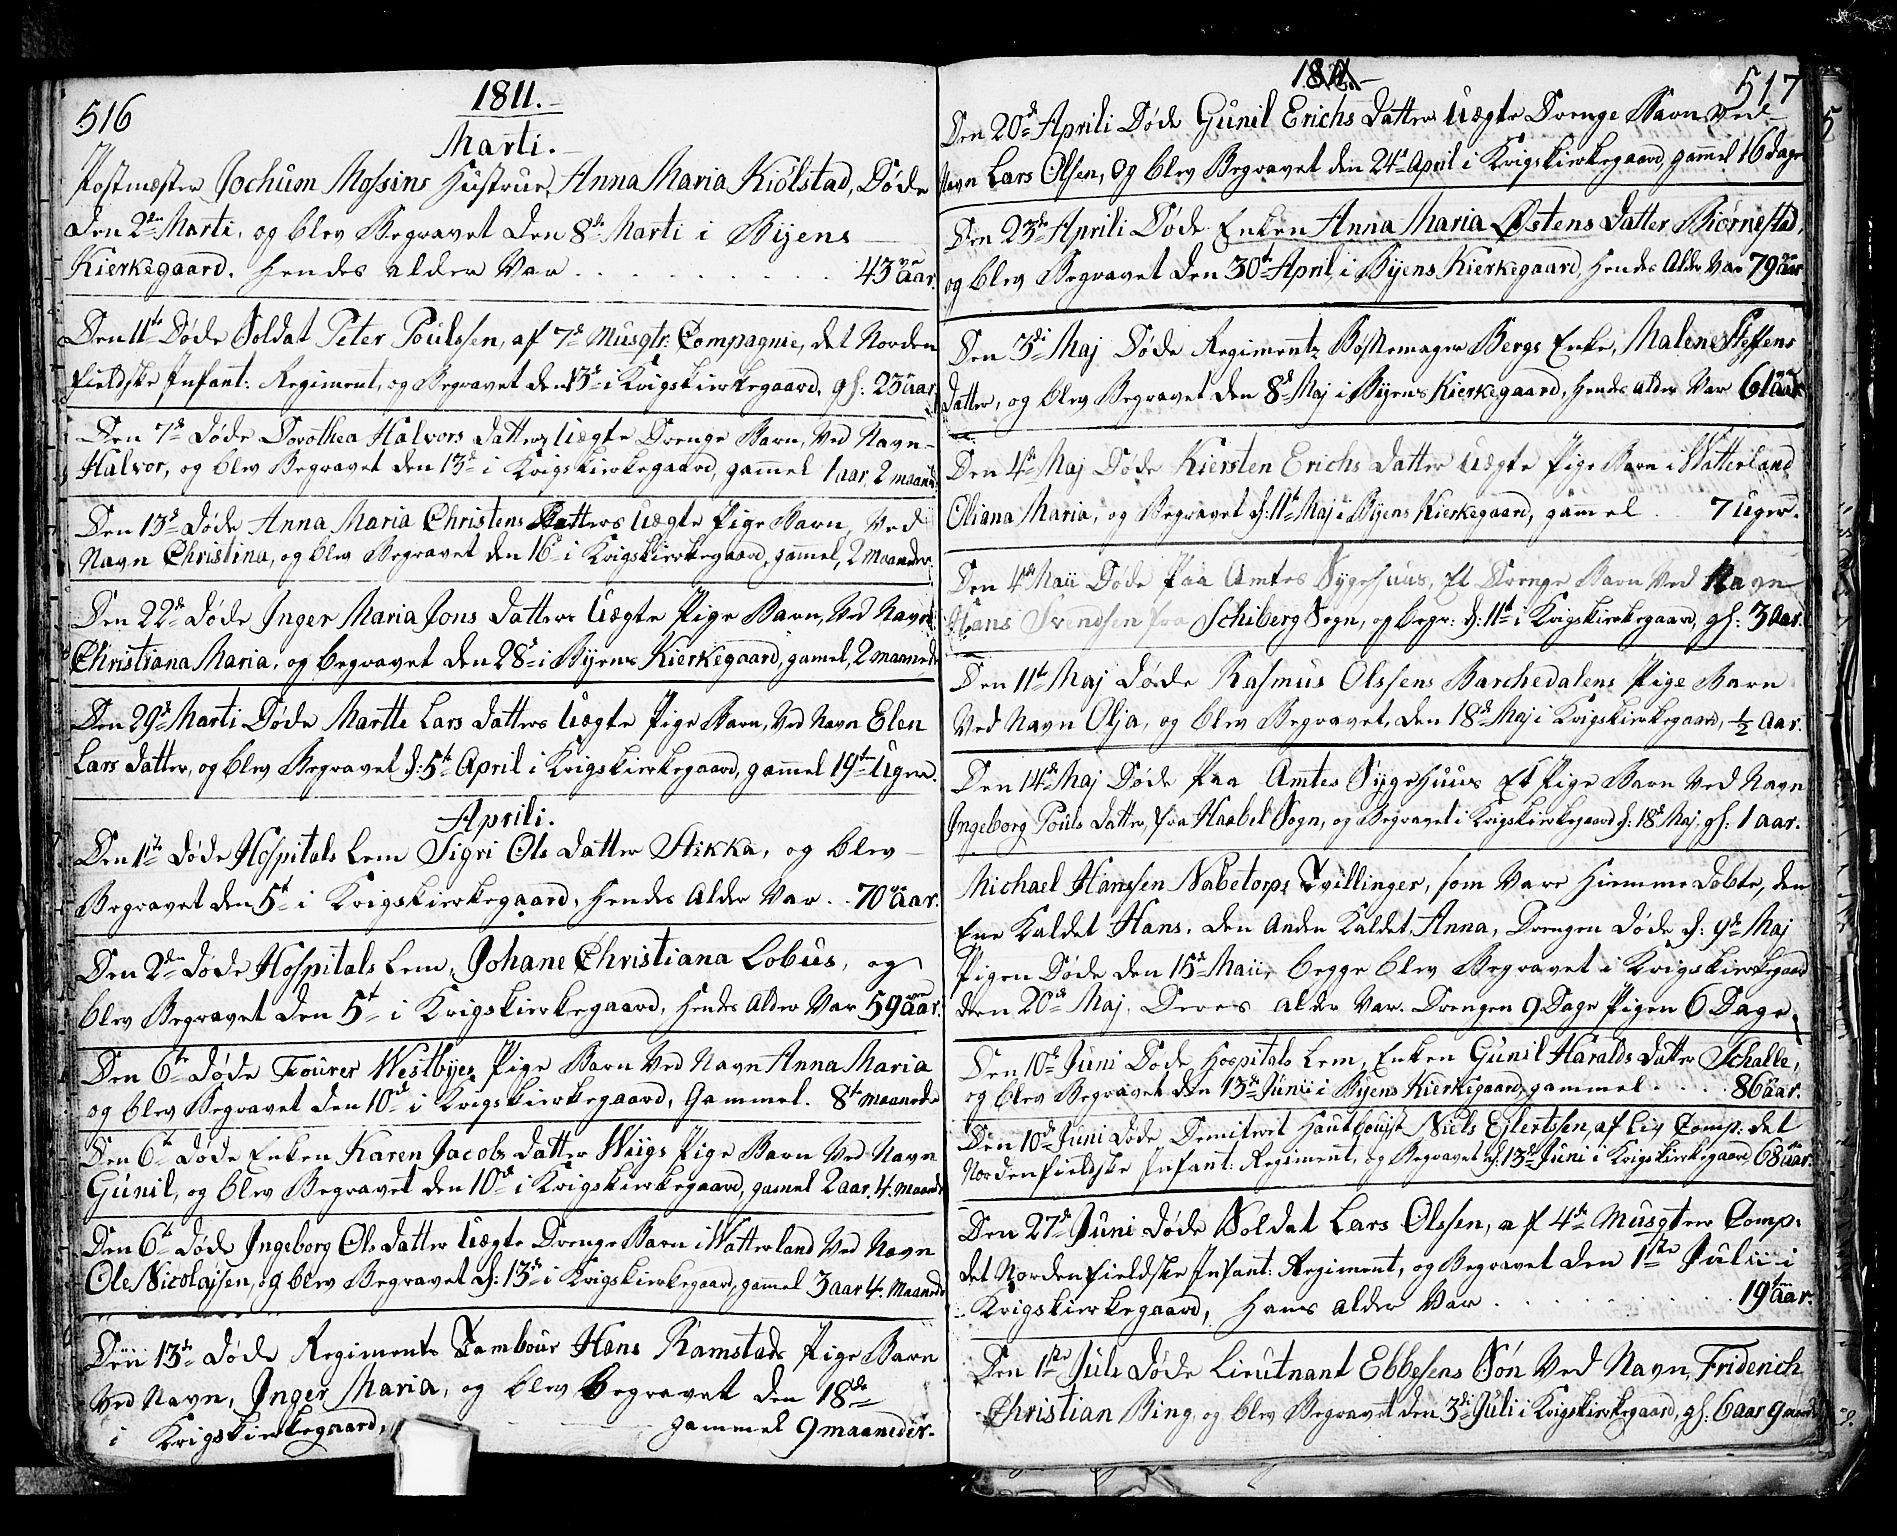 516
1811.
Marti.
Postmæster Jochum Mossins Hustrue, Anna Maria Kiølstad, Døde
den 2den Marti, og blev Begravet den 8de Marti i Byens
Kierkegaard. hendes alder Var . . . . . . . 43 aar.
Den 11te Døde Soldat Peter Poulssen, af 7de Musqtr: Compagnie, det Norden
fieldske Infant: Regiment, og Begravet den 13de i Krigskierkegaard, gl: 23 aar.
Den 7de Døde Dorothea Halvors Datters Uægte Drenge Barn, Ved Navn
Halvor, og blev Begravet den 13de i Krigskierkegaard, gammel 1 aar, 2 maaned
Den 13de Døde Anna Maria Christens Datters Uægte Pige Barn, Ved
Navn Christina, og blev Begravet den 16de i Krigskierkegaard, gammel, 2 Maaneder.
Den 22de Døde Inger Maria Jons Datters Uægte Pige Barn, Ved Navn
Christiana Maria, og begravet den 28de i Byens Kierkegaard, gamel, 2 maaneder
Den 29de Marti Døde Martte Lars Datters Uægte Pige Barn, Ved Navn Elen
Lars Datter, og blev Begravet d: 5te April i Krigskierkegaard, gammel 19ten Uger.
Aprili.
Den 1ste Døde Hospitals Lem Sigri Ols Datter Stikka, og blev
Begravet den 5te i Krigskierkegaard, hendes Alder Var . . 70 aar.
Den 2den Døde Hospitals Lem, Johane Christiana Lobus, og
blev Begravet den 5te i Krigskierkegaard, hendes Alder Var 59 aar.
Den 6te Døde Fourer Westbyes Pige Barn Ved Navn Anna Maria
og blev Begravet den 10de i Krigskierkegaard, Gammel. 8te maaneder
Den 6te Døde Enken Karen Jacobs Datter Wiigs Pige Barn Ved Navn
Gunil, og blev Begravet den 10de i Krigskierkegaard, gamel 2 aar, 4. maaneder
Den 6te Døde Ingeborg Ols Datter Uægte Drenge Barn i Watterland Ved Navn
Ole Nicolajsen, og blev Begravet d: 13de i Krigskierkegaard, gamel 3 aar 4. Maaneder
Den 13de Døde Regiments Tambour Hans Ramstads Pige Barn
Ved Navn, Inger Maria, og blev begravet den 18de
i Krigskierkegaard, gammel 9 maaneder.
1811.
517
Den 20de Aprili Døde Gunil Erichs Datters Uægte Drenge Barn Ved
Navn Lars Olsen, og blev Begravet den 24de April i Krigskierkegaard, gammel 16 dage
Den 23de Aprili Døde Enken Anna Maria Østens Datter Biørnestad,
og blev Begravet den 30te April, i Byens Kierkegaard, hendes Alder Var 79 aar
Den 3die Maj Døde Regiments Bøssemager Bergs Enke, Malene Steffens
Datter, og blev Begravet den 8de Maj i Byens Kierkegaard, hendes alder Var 61 aar
Den 4de Maj Døde Kiersten Erichs Datter Uægte Pige Barn i Watterland
Oliana Maria, og Begravet d: 11te Maj i Byens Kierkegaard, gammel . 7 Uger.
Den 4de Maii Døde Paa Amtes Sygehuus, Et Drenge Barn Ved Navn
Hans Svendsen fra Schiberg Sogn, og begr: d: 11te i Krigskierkegaard, gl: 3 Aar.
Den 11te Maj Døde Rasmus Olssens Barchedalens Pige Barn
Ved Navn Olja, og blev Begravet, den 18de Maj i Krigskierkegaard, ½ Aar.
Den 14de Maj Døde Paa Amtes Sygehuus Et Pige Barn Ved Navn
Ingeborg Pouls Datter, fra Haabel Sogn, og Begravet i Krigskierkegaard d: 18de Maj, gl: 1 aar.
Michael Hanssen Nabetorps Tvillinger, som Vare Hiemmedøbte, den
Ene Kaldet Hans, den Anden Kaldet, Anna, Drengen Døde d: 9de Maj
Pigen Døde den 15de Maii, begge blev Begravet i Krigskierkegaard
den 20de Maj. Deres alder Var. Drengen 9 Dage Pigen 6 Dage.
Den 10de Juni Døde Hospitals Lem, Enken Gunil Haralds Datter Schalle,
og blev Begravet den 13de Junii i Byens Kierkegaard, gammel . . . . 86 aar.
Den 10de Juni Døde Demiteret Hautboist Niels Ejlertsen, af Liv Comp: det
Nordenfieldske Infant: Regiment, og Begravet d: 13de Juni i Krigskierkegaard 68 aar.
Den 27de Juni Døde Soldat Lars Olssen, af 4de Musqteer Comp:
det Nordenfieldske Infant: Regiment, og Begravet den 1ste Julii i
Krigskierkegaard, hans alder Var . . . . . . . 19 aar.
Den 1ste Juli Døde Lieutnant Ebbesens Søn Ved Navn, Friderich
Christian Bing, og blev Begravet den 3die Juli i Krigskierkegaard, gl: 6 aar 9 maaned